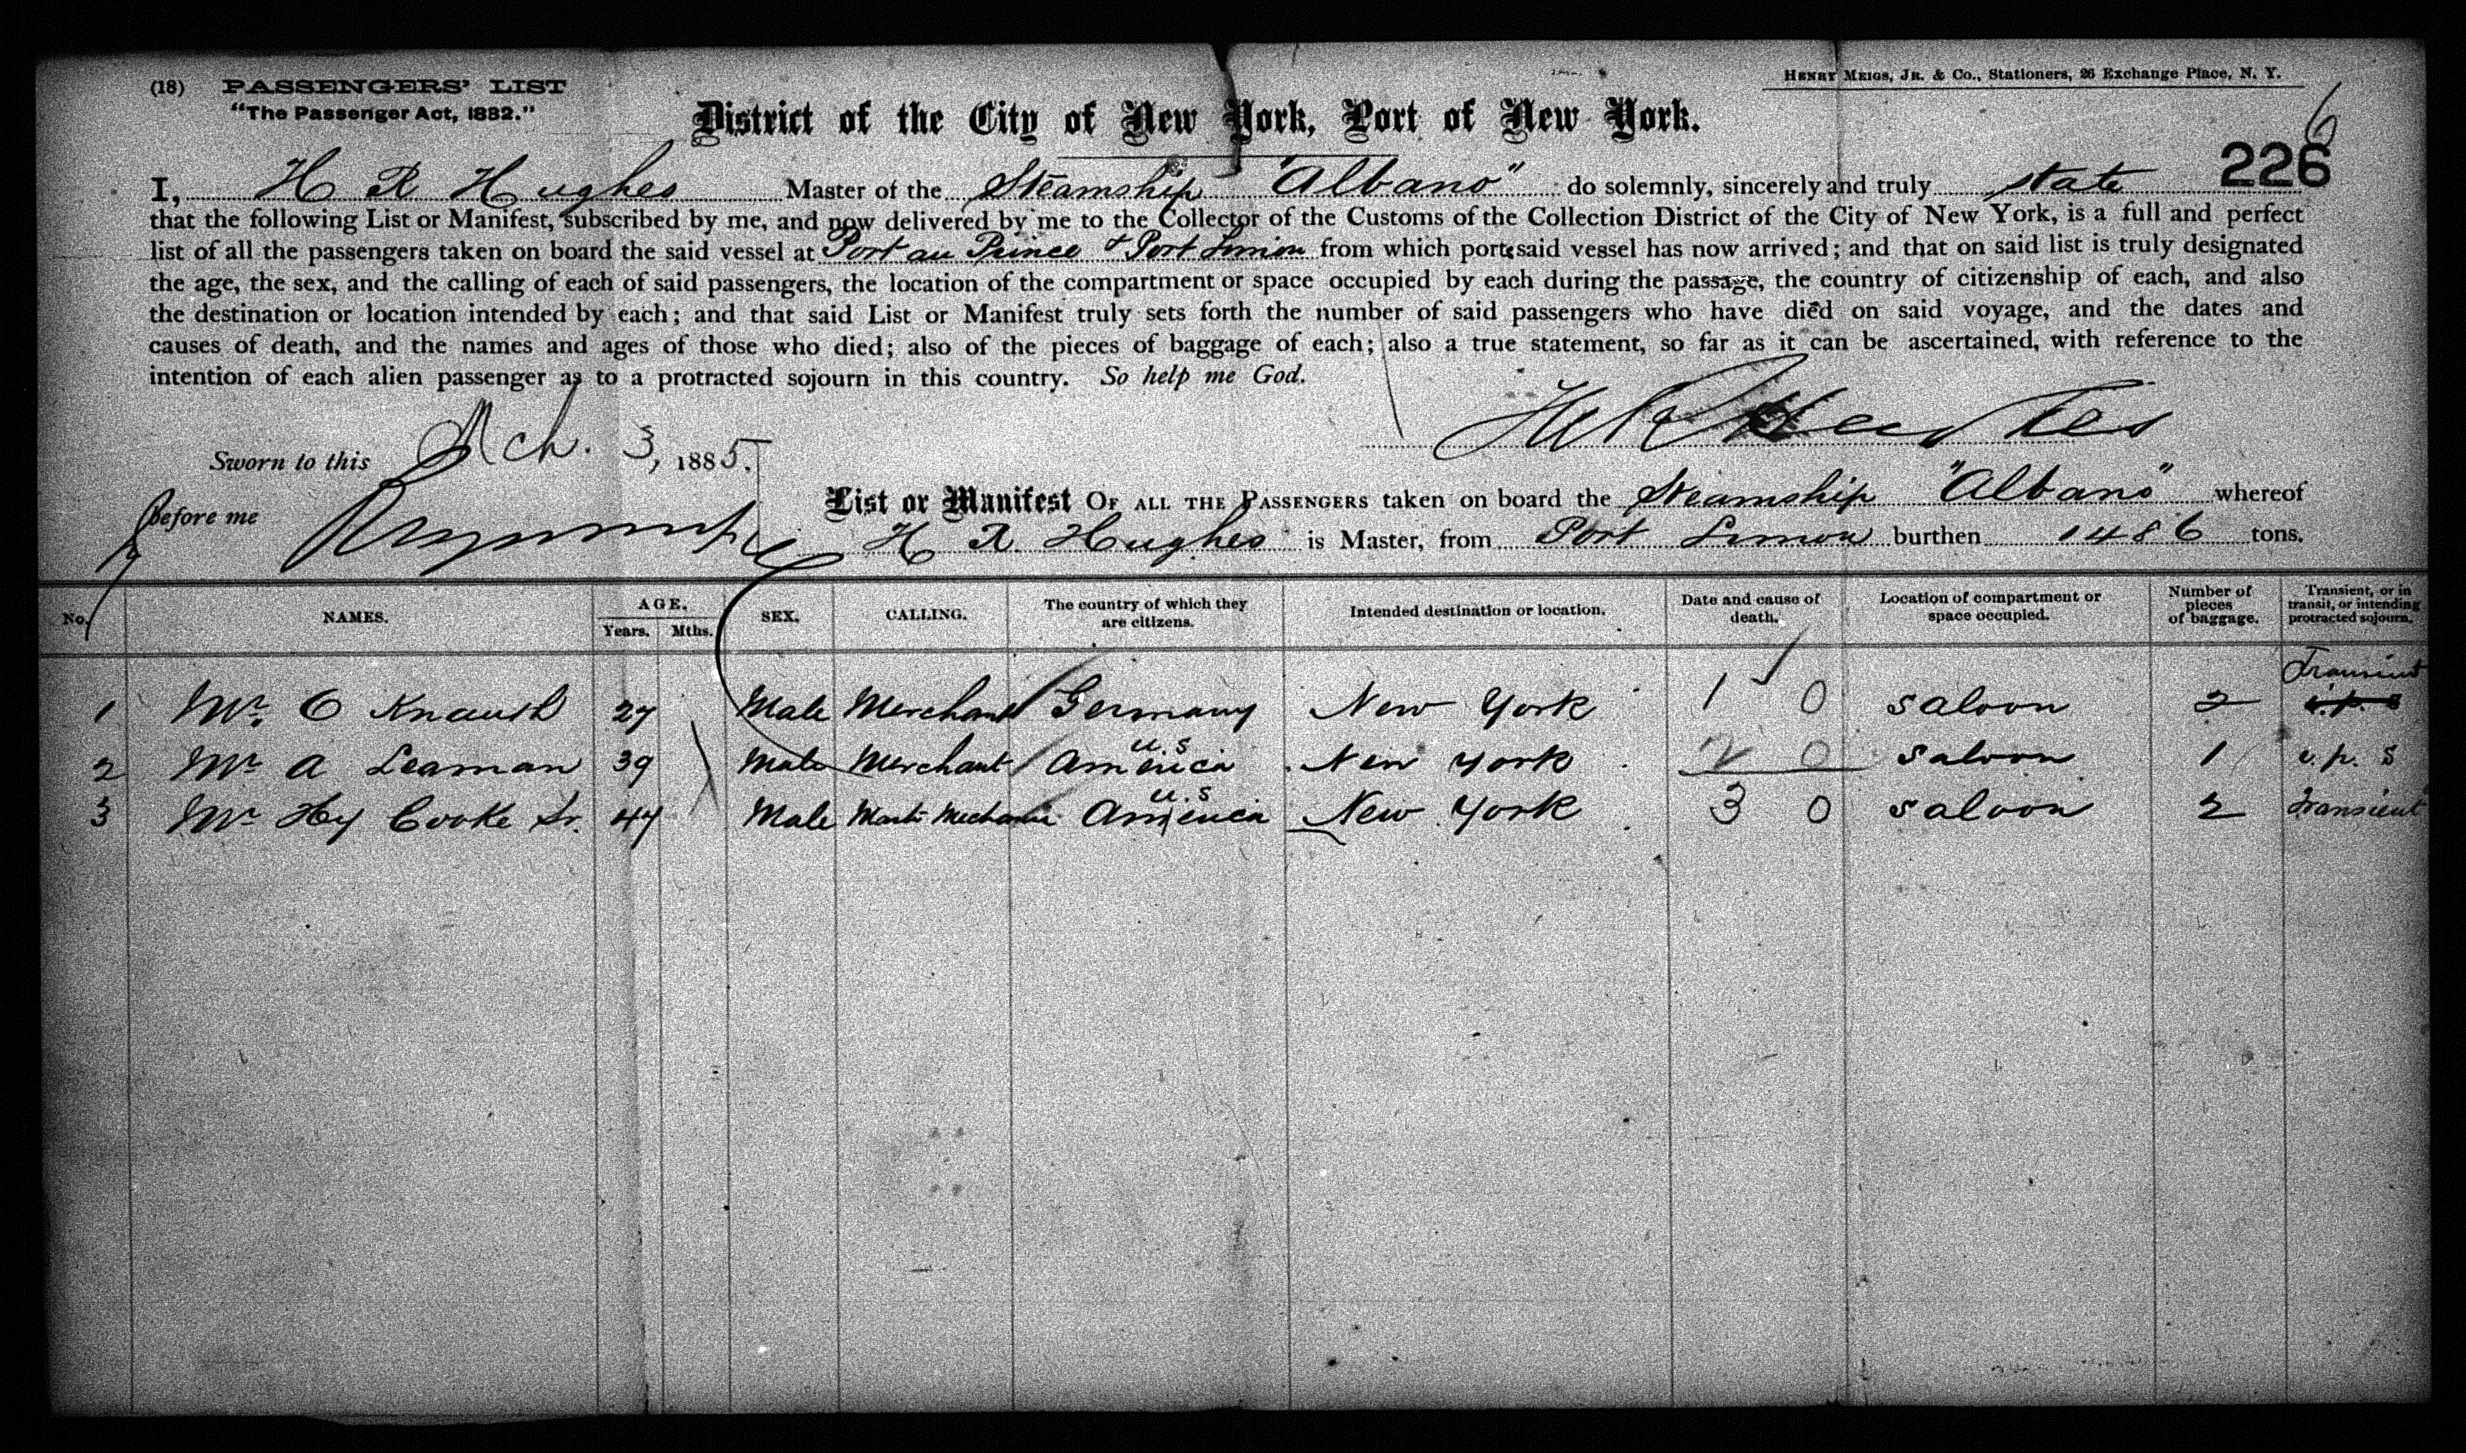 (18) PASSENGERS' LIST
"The Passenger Act, 1882."
HENRY MEIGS, JR. & CO., Stationers, 26 Exchange Place, N. Y.
District of the City of New York, Port of New York.
6
226
I, H R Hughes Master of the Steamship "Albano" do solemnly, sincerely and truly state
that the following List or Manifest, subscribed by me, and now delivered by me to the Collector of the Customs of the Collection District of the City of New York, is a full and perfect
list of all the passengers taken on board the said vessel at Port au Prince & Port Limon from which ports said vessel has now arrived; and that on said list is truly designated
the age, the sex, and the calling of each of said passengers, the location of the compartment or space occupied by each during the passage, the country of citizenship of each, and also
the destination or location intended by each; and that said List or Manifest truly sets forth the number of said passengers who have died on said voyage, and the dates and
causes of death, and the names and ages of those who died; also of the pieces of baggage of each; also a true statement, so far as it can be ascertained, with reference to the
intention of each alien passenger as to a protracted sojourn in this country. So help me God.
H R Hughes
Sworn to this Mch. 3, 1885.
Before me
List or Manifest OF ALL THE PASSENGERS taken on board the Steamship "Albano" whereof
H R Hughes is Master, from Port Limon burthen 1486 tons.
No. NAMES. AGE. Years. Mths. SEX. CALLING. The country of which they are citizens. Intended destination or location. Date and cause of death. Location of compartment or space occupied. Number of pieces of baggage. Transient, or in transit, or intending protracted sojourn.
1 Mr. C 27 Male Merchant Germany New York 1 0 saloon 2 Transient
2 Mr A Leaman 39 Male Merchant U.S America New York 2 0 saloon 1 i. p. s
3 Mr Hy Cooke Sr. 47 Male Mechanic U.S America New York 3 0 saloon 2 Transient